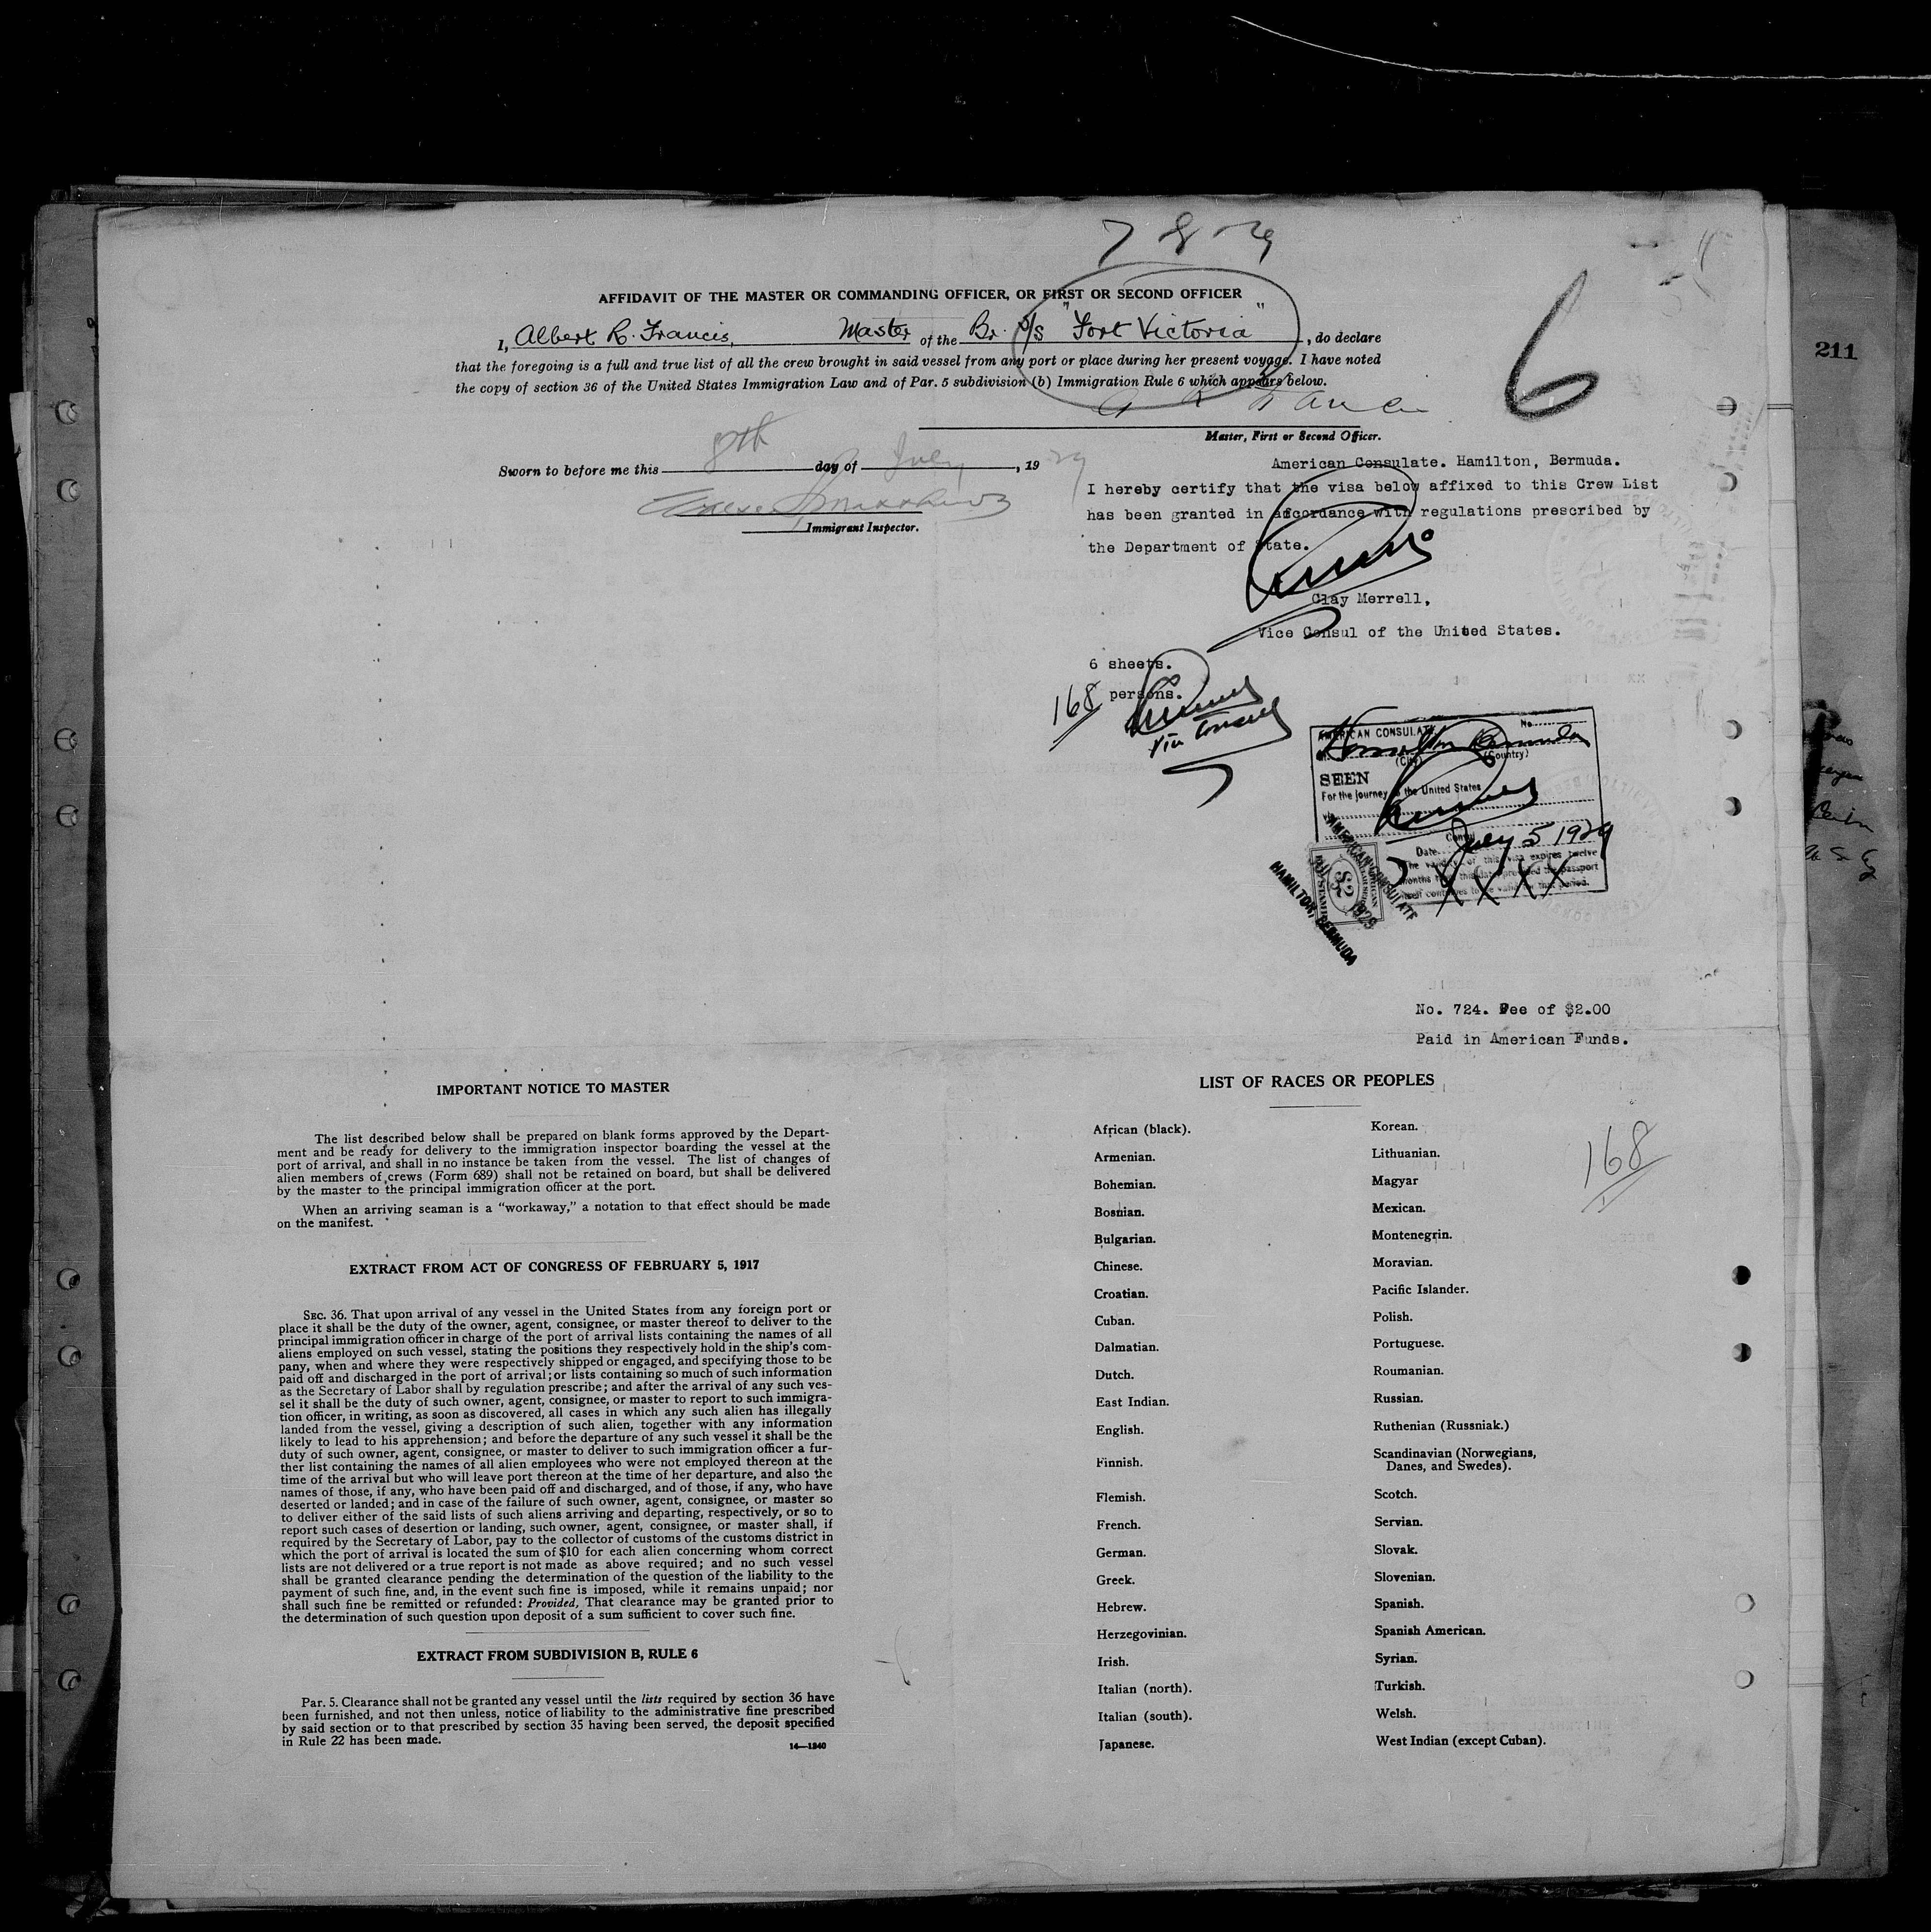 7 8 29
AFFIDAVIT OF THE MASTER OR COMMANDING OFFICER, OR FIRST OR SECOND OFFICER
I, Albert R. Francis, Master of the Br. S/S "Fort Victoria", do declare
that the foregoing is a full and true list of all the crew brought in said vessel from any port or place during her present voyage. I have noted
the copy of section 36 of the United States Immigration Law and of Par. 5 subdivision (b) Immigration Rule 6 which appears below.
6
211
A R Francis
Master, First or Second Officer.
Sworn to before me this 8th day of July, 1929
Immigrant Inspector.
American Consulate. Hamilton, Bermuda.
I hereby certify that the visa below affixed to this Crew List
has been granted in accordance with regulations prescribed by
the Department of State.
Clay Merrell,
Vice Consul of the United States.
6 sheets.
168 persons.
Vice Consul
AMERICAN CONSULATE No.
Hamilton Bermuda
(City) (Country)
SEEN
For the journey to the United States
Consul
Date July 5 1929
The validity of this visa expires twelve
months from this date provided the passport
itself continues to be valid for that period.
XXXX
AMERICAN CONSULATE
$2
JUL 5 1929
HAMILTON, BERMUDA
No. 724. Fee of $2.00
Paid in American Funds.
IMPORTANT NOTICE TO MASTER
The list described below shall be prepared on blank forms approved by the Depart-
ment and be ready for delivery to the immigration inspector boarding the vessel at the
port of arrival, and shall in no instance be taken from the vessel. The list of changes of
alien members of crews (Form 689) shall not be retained on board, but shall be delivered
by the master to the principal immigration officer at the port.
When an arriving seaman is a "workaway," a notation to that effect should be made
on the manifest.
EXTRACT FROM ACT OF CONGRESS OF FEBRUARY 5, 1917
SEC. 36. That upon arrival of any vessel in the United States from any foreign port or
place it shall be the duty of the owner, agent, consignee, or master thereof to deliver to the
principal immigration officer in charge of the port of arrival lists containing the names of all
aliens employed on such vessel, stating the positions they respectively hold in the ship's com-
pany, when and where they were respectively shipped or engaged, and specifying those to be
paid off and discharged in the port of arrival; or lists containing so much of such information
as the Secretary of Labor shall by regulation prescribe; and after the arrival of any such ves-
sel it shall be the duty of such owner, agent, consignee, or master to report to such immigra-
tion officer, in writing, as soon as discovered, all cases in which any such alien has illegally
landed from the vessel, giving a description of such alien, together with any information
likely to lead to his apprehension; and before the departure of any such vessel it shall be the
duty of such owner, agent, consignee, or master to deliver to such immigration officer a fur-
ther list containing the names of all alien employees who were not employed thereon at the
time of the arrival but who will leave port thereon at the time of her departure, and also the
names of those, if any, who have been paid off and discharged, and of those, if any, who have
deserted or landed; and in case of the failure of such owner, agent, consignee, or master so
to deliver either of the said lists of such aliens arriving and departing, respectively, or so to
report such cases of desertion or landing, such owner, agent, consignee, or master shall, if
required by the Secretary of Labor, pay to the collector of customs of the customs district in
which the port of arrival is located the sum of $10 for each alien concerning whom correct
lists are not delivered or a true report is not made as above required; and no such vessel
shall be granted clearance pending the determination of the question of the liability to the
payment of such fine, and, in the event such fine is imposed, while it remains unpaid; nor
shall such fine be remitted or refunded: Provided, That clearance may be granted prior to
the determination of such question upon deposit of a sum sufficient to cover such fine.
EXTRACT FROM SUBDIVISION B, RULE 6
Par. 5. Clearance shall not be granted any vessel until the lists required by section 36 have
been furnished, and not then unless, notice of liability to the administrative fine prescribed
by said section or to that prescribed by section 35 having been served, the deposit specified
in Rule 22 has been made.
14—1240
LIST OF RACES OR PEOPLES
African (black).
Armenian.
Bohemian.
Bosnian.
Bulgarian.
Chinese.
Croatian.
Cuban.
Dalmatian.
Dutch.
East Indian.
English.
Finnish.
Flemish.
French.
German.
Greek.
Hebrew.
Herzegovinian.
Irish.
Italian (north).
Italian (south).
Japanese.
Korean.
Lithuanian.
Magyar
Mexican.
Montenegrin.
Moravian.
Pacific Islander.
Polish.
Portuguese.
Roumanian.
Russian.
Ruthenian (Russniak.)
Scandinavian (Norwegians,
Danes, and Swedes).
Scotch.
Servian.
Slovak.
Slovenian.
Spanish.
Spanish American.
Syrian.
Turkish.
Welsh.
West Indian (except Cuban).
168